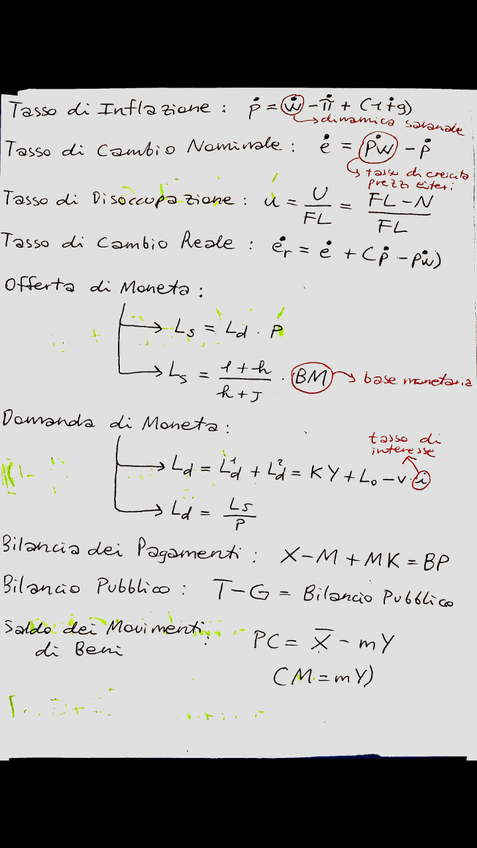 Tasso di Inflazione : ṗ = ẇ - π̇ + (1+̇g)
dinamica salariale
Tasso di Cambio Nominale : ė = ṗw - ṗ
tasso di crescita
prezzi esteri
Tasso di Disoccupazione : u = U/FL = FL-N/FL
Tasso di Cambio Reale : ėr = ė + (ṗ - ṗw)
Offerta di Moneta :
Ls = Ld · P
Ls = 1+h/h+j · BM → base monetaria
Domanda di Moneta :
tasso di
interesse
Ld = Ld¹ + Ld² = KY + Lo - v · i
Ld = Ls/P
Bilancia dei Pagamenti : X-M+MK = BP
Bilancio Pubblico : T-G = Bilancio Pubblico
Saldo dei Movimenti : PC = X̅ - mY
di Beni
(M = mY)